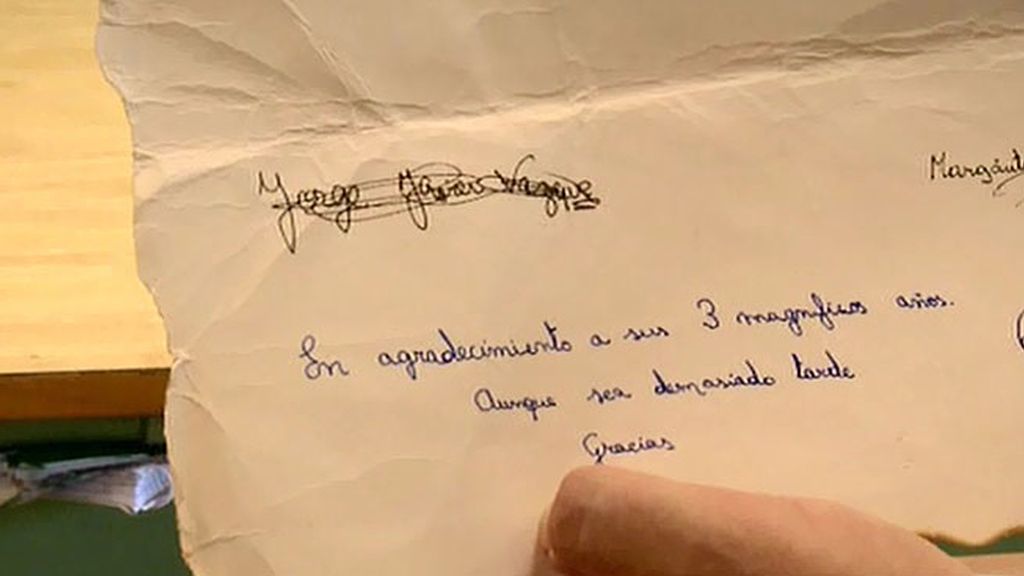 Jorge Javier Vazque
En agradecimiento a sus 3 magnificos años.
Aunque sea demasiado tarde
Gracias